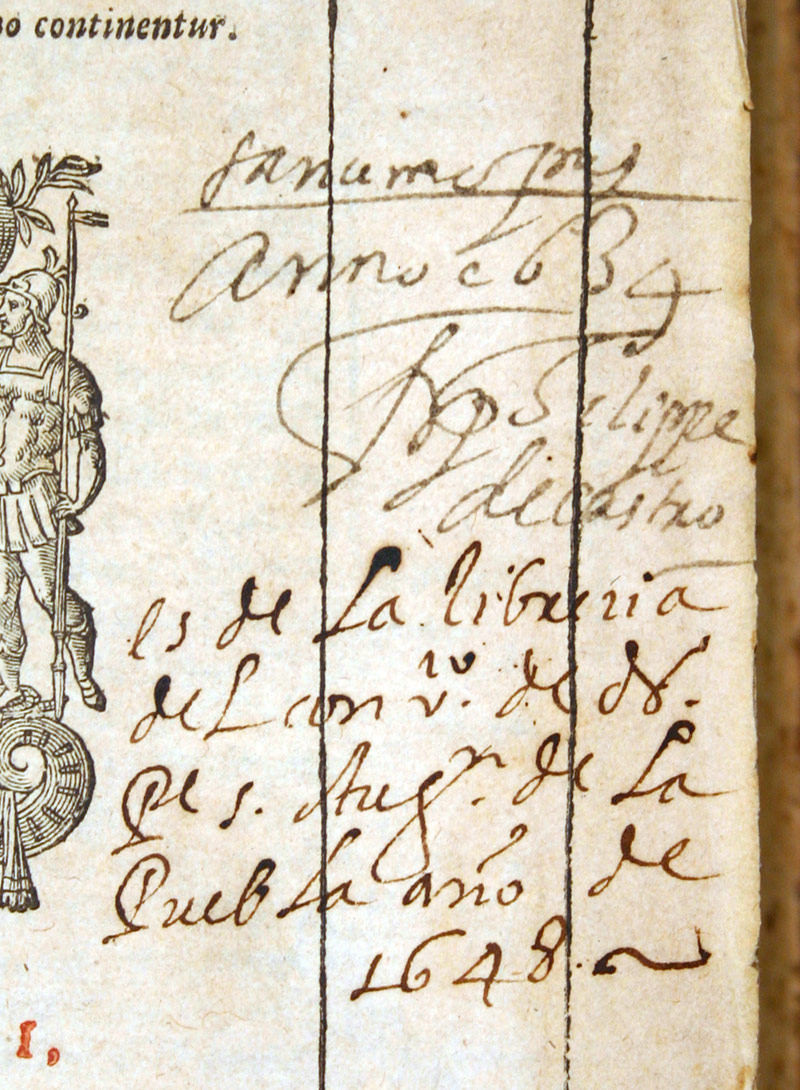 o continentur.
Anno 1634
Felippe
de castro
es de La libreria
del conv.to de N.
Pe S. Augn. de La
Puebla año de
1648.
I,